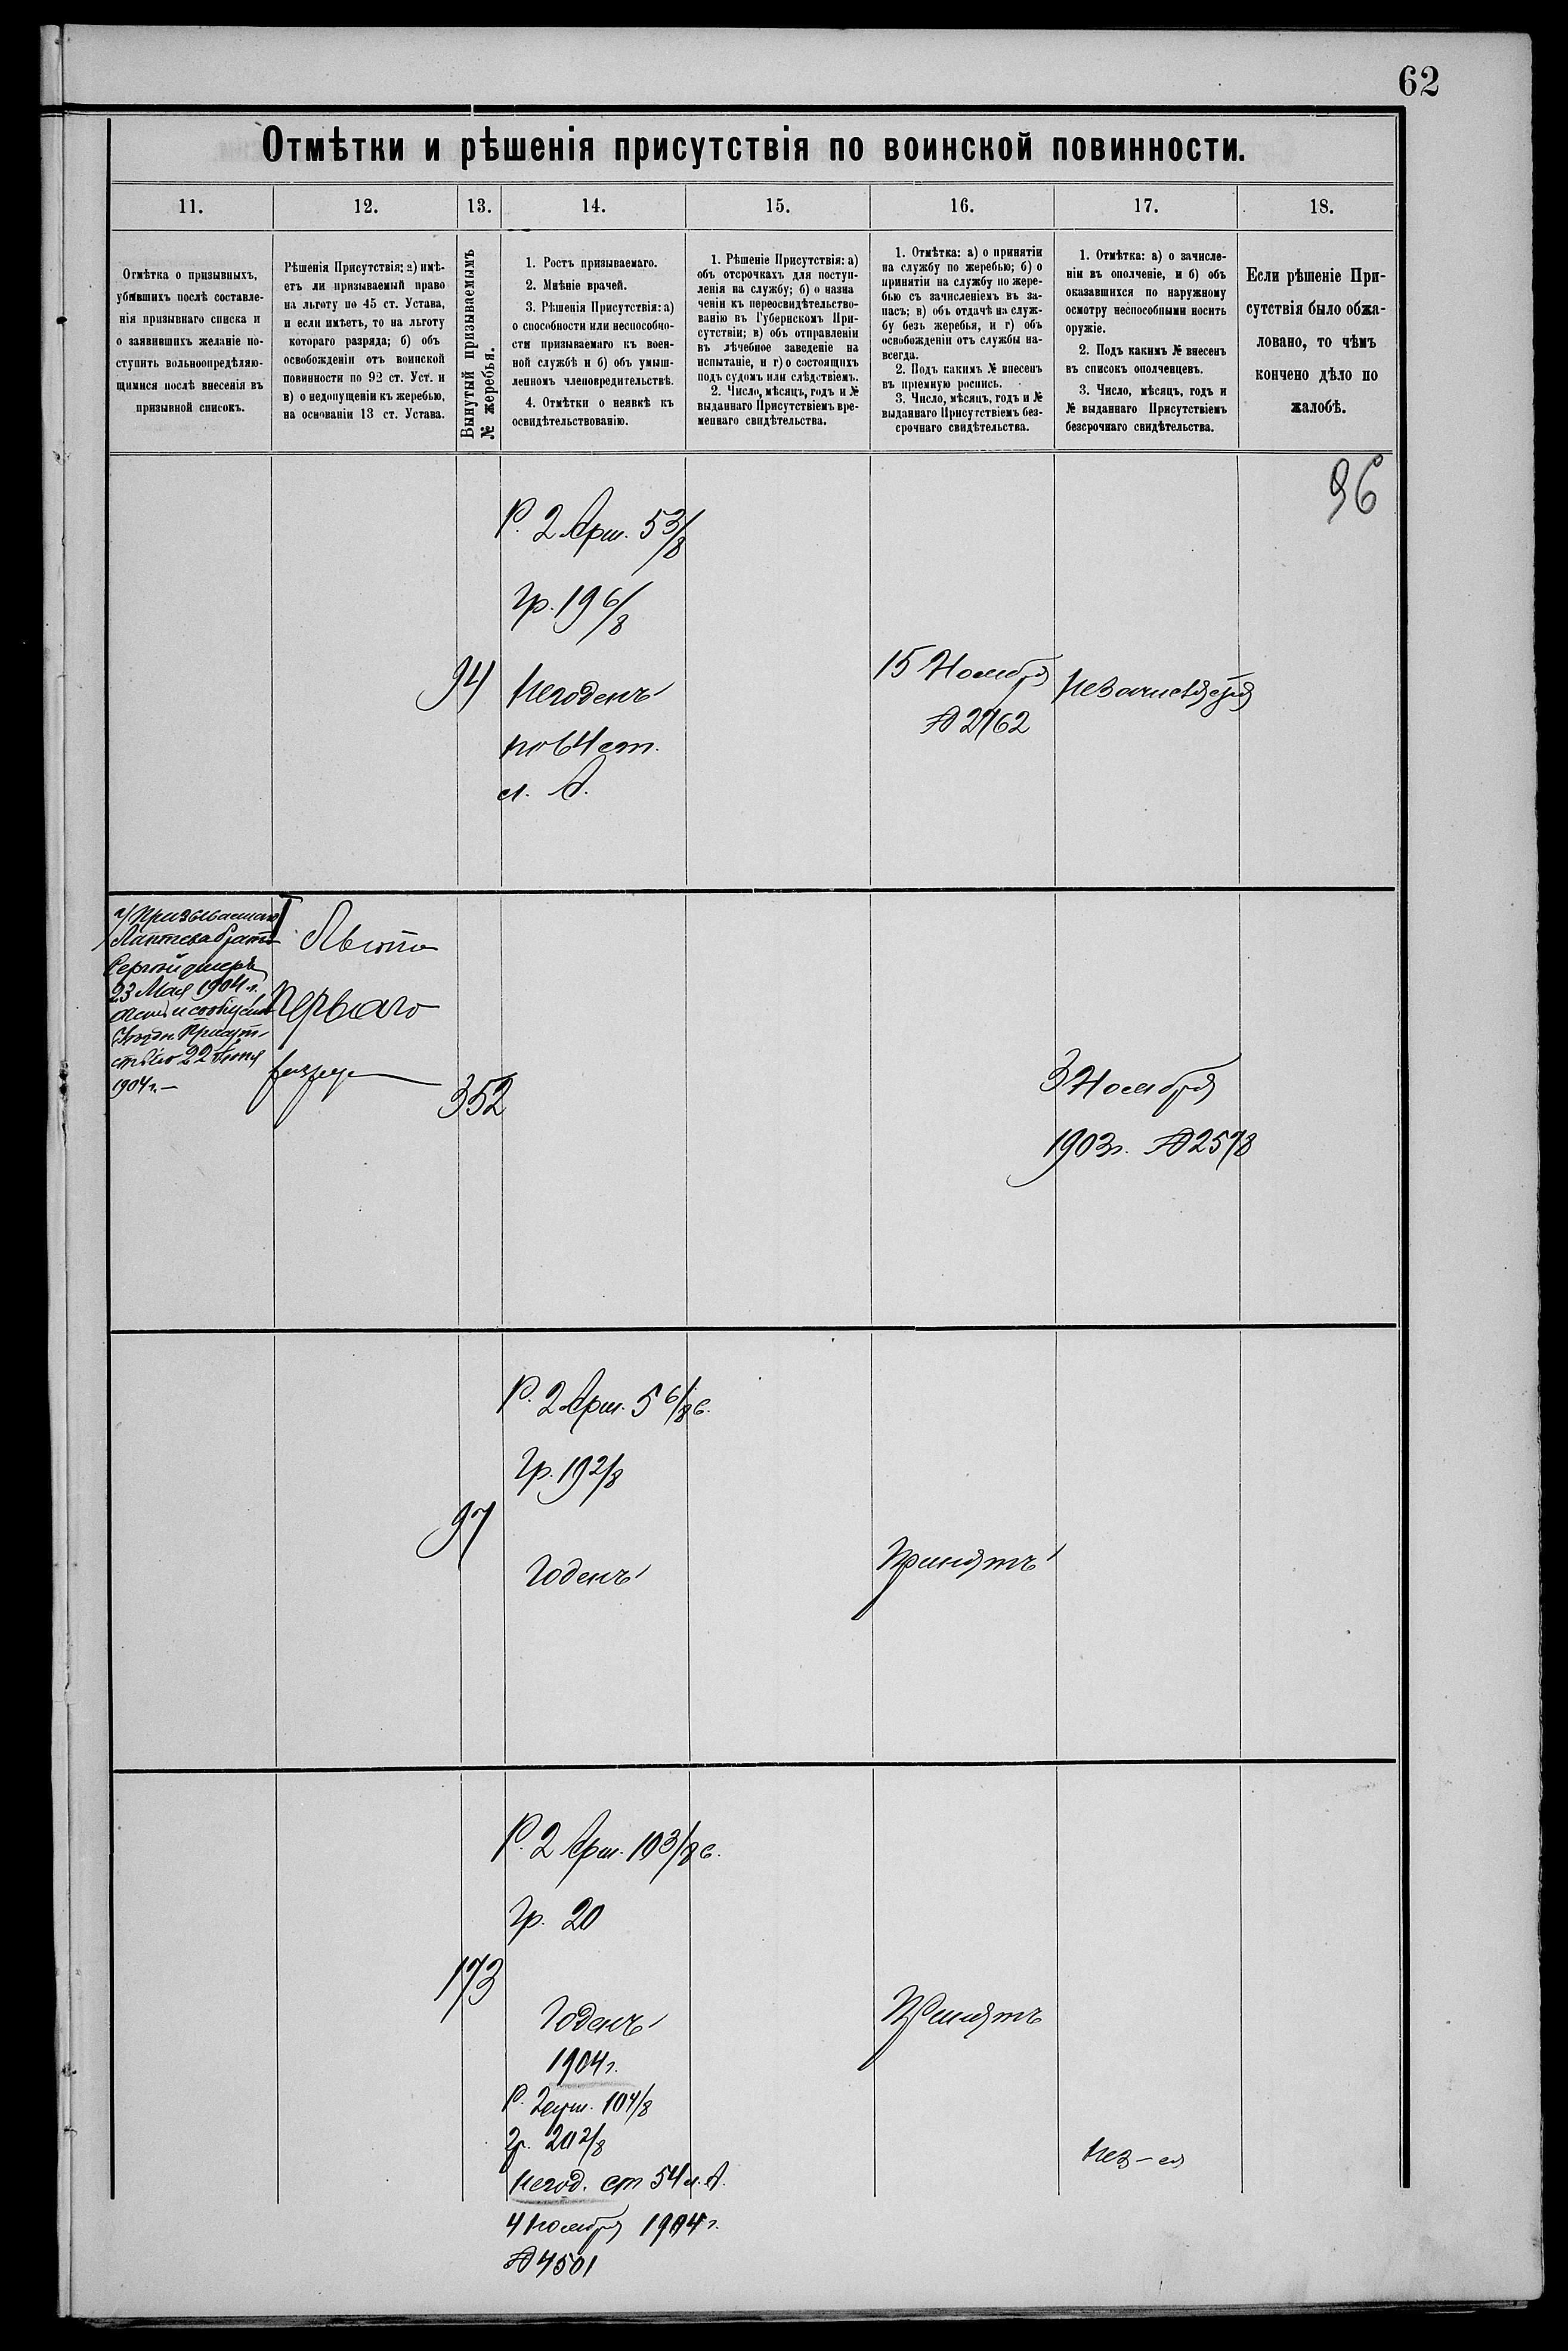 62
Отмѣтки и рѣшенія присутствія по воинской повинности.
11.
12.
13.
14.
15.
16.
17.
18.
Отмѣтка о призывныхъ,
убывшихъ послѣ составле-
нія призывнаго списка и
о заявившихъ желаніе по-
ступить вольноопредѣляю-
щимися послѣ внесенія въ
призывной списокъ.
Рѣшенія Присутствія: а) имѣ-
етъ ли призываемый право
на льготу по 45 ст. Устава,
и если имѣетъ, то на льготу
котораго разряда; б) объ
освобожденіи отъ воинской
повинности по 92 ст. Уст. и
в) о недопущеніи къ жеребью,
на основаніи 13 ст. Устава.
Вынутый призываемымъ
№ жеребья.
1. Ростъ призываемаго.
2. Мнѣніе врачей.
3. Рѣшенія Присутствія: а)
о способности или неспособно-
сти призываемаго къ воен-
ной службѣ и б) объ умыш-
ленномъ членовредительствѣ.
4. Отмѣтки о неявкѣ къ
освидѣтельствованію.
1. Рѣшеніе Присутствія: а)
объ отсрочкахъ для поступ-
ленія на службу; б) о назна
ченіи къ переосвидѣтельство-
ванію въ Губернскомъ При-
сутствіи; в) объ отправленіи
въ лѣчебное заведеніе на
испытаніе, и г) о состоящихъ
подъ судомъ или слѣдствіемъ.
2. Число, мѣсяцъ, годъ и №
выданнаго Присутствіемъ вре-
меннаго свидѣтельства.
1. Отмѣтка: а) о принятіи
на службу по жеребью; б) о
принятіи на службу по жере-
бью съ зачисленіемъ въ за-
пасъ; в) объ отдачѣ на служ-
бу безъ жеребья, и г) объ
освобожденіи отъ службы на-
всегда.
2. Подъ какимъ № внесенъ
въ пріемную роспись.
3. Число, мѣсяцъ, годъ и №
выданнаго Присутствіемъ без-
срочнаго свидѣтельства.
1. Отмѣтка: а) о зачисле-
ніи въ ополченіе, и б) объ
оказавшихся по наружному
осмотру неспособными носить
оружіе.
2. Подъ какимъ № внесенъ
въ списокъ ополченцевъ.
3. Число, мѣсяцъ, годъ и
№ выданнаго Присутствіемъ
безсрочнаго свидѣтельства.
Если рѣшеніе При-
сутствія было обжа-
ловано, то чѣмъ
кончено дѣло по
жалобѣ.
96
94
Р. 2 Арш. 5 3/8
Гр. 19 6/8
Негоденъ
по 64 ст.
л. А.
15 Ноября
№ 2762
Незачисляется
Призываемаго
Лаптева братъ
Сергѣй умеръ
23 Мая 1904 г.
Присут-
ствію 22 Іюня
1904 г. —
I Льгота
перваго
разряда
352
3 Ноября
1903 г. № 2578
97
Р. 2 Арш. 5 6/8 в.
Гр. 19 2/8
Годенъ
Принятъ
173
Р. 2 Арш. 10 3/8 в.
Гр. 20
Годенъ
1904 г.
Р. 2 арш. 10 4/8
Гр. 20 2/8
Негод. ст 54 л. А.
4 Ноября 1904 г.
№ 4501
Принятъ
Нез-ся